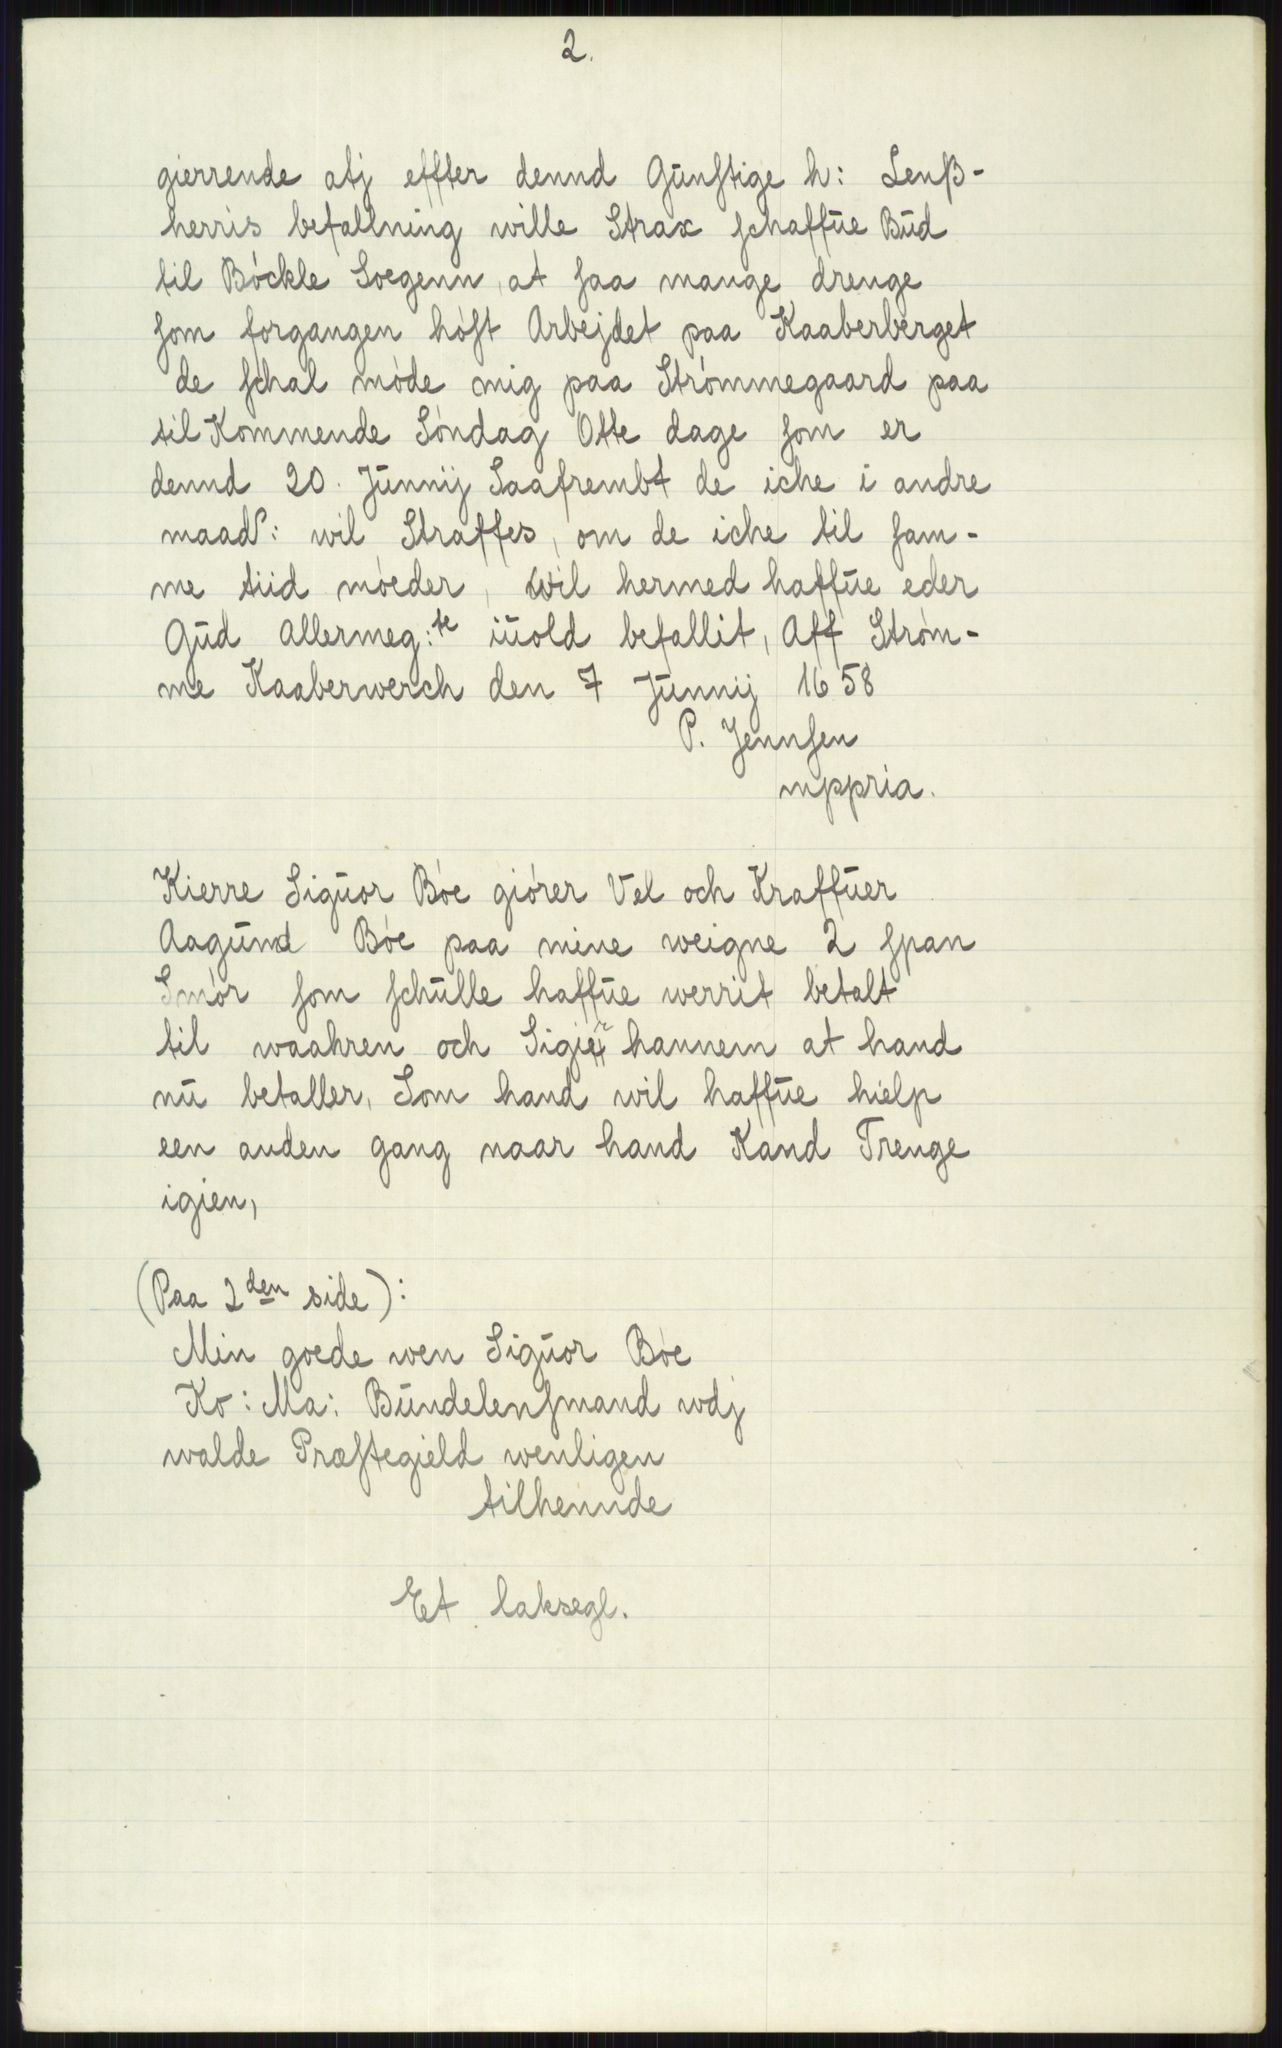 2.
gierrende atj effter dennd Gūnstige h: Lenß-
herris befallning wille Strax schaffūe Būd
til Bóckle Soegenn, at saa mange drenge
som forgangen hóst Arbejdet paa Kaaberberget
de schal móde mig paa Strómmegaard paa
til Kommende Sóndag Otte dage som er
dennd 20. Jūnnij Saafrembt de iche i andre
maad: wil Straffes, om de iche til sam-
me tiid móeder, wil hermed haffūe eder
Gūd Allermeg:te iūold befallit, Aff Stróm-
me Kaaberwerch den 7 Jūnnij 1658
P. Jennsen
mppria.
Kierre Sigūor Bóe giórer Vel och Kraffūer
Aagūnd Bóe paa mine weigne 2 span
Smór som schūlle haffūe werrit betalt
til waahren och Sigier hannem at hand
nū betaller, Som hand wil haffūe hielp
een anden gang naar hand Kand Trenge
igien,
(Paa 2den side):
Min goede wen Sigūor Bóe
Ko: Ma: Būndelensmand wdj
walde Præstegield wenligen
tilhennde
Et laksegl.